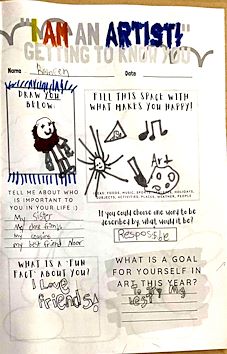 "I AM AN ARTIST!"
GETTING TO KNOW YOU
Name
Date
DRAW YOU
BELOW:
FILL THIS SPACE WITH
WHAT MAKES YOU HAPPY!
Art
IDEAS: FOODS, MUSIC, SPORTS, HOLIDAYS,
SUBJECTS, ACTIVITIES, PLACES, WEATHER, PEOPLE
TELL ME ABOUT WHO
IS IMPORTANT TO
YOU IN YOUR LIFE :)
My Sister
My close friends
my cousins
my best friend Noor
If you could choose one word to be
described by, what would it be?
WHAT IS A "FUN
FACT" ABOUT YOU?
I Love
friends!
WHAT IS A GOAL
FOR YOURSELF IN
ART THIS YEAR?
My
Best